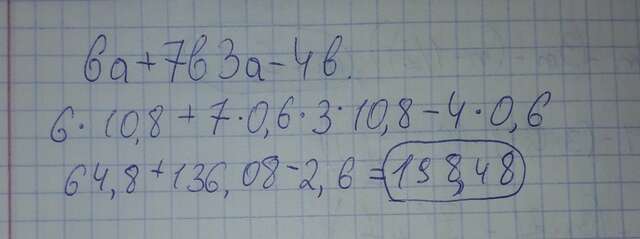 6а+7в3а-4в.
6·10,8+7·0,6·3·10,8-4·0,6
64,8+136,08-2,6=198,48